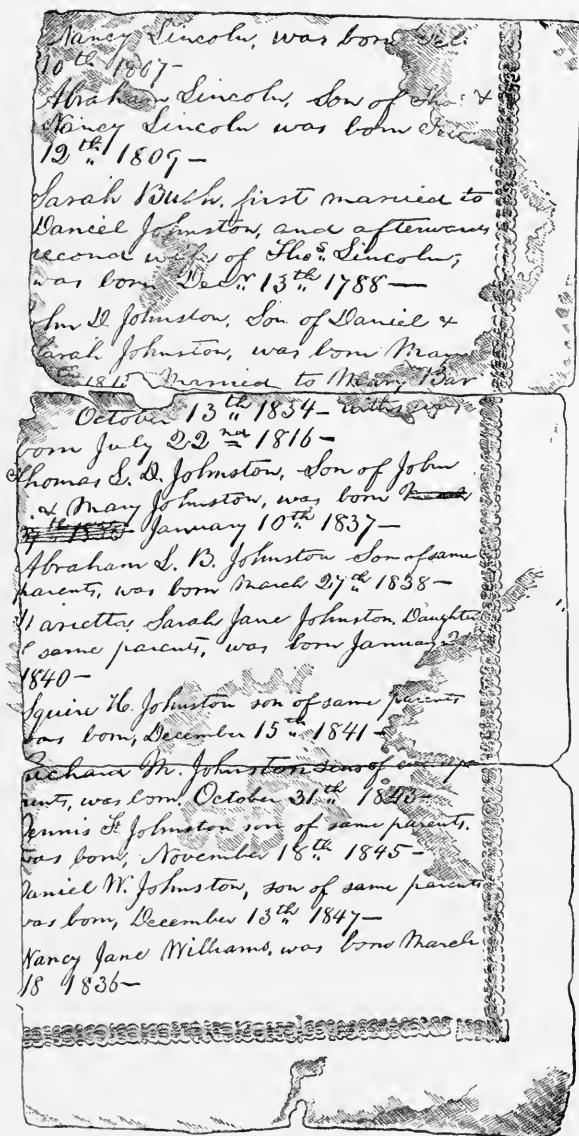 Nancy Lincoln, was born Feb.
10th 1807—
Abraham Lincoln, Son of Thos &
Nancy Lincoln was born Feb
12th 1809—
Sarah Bush, first married to
Daniel Johnston, and afterwards
second wife of Thos. Lincoln,
was born Decr 13th 1788—
ohn D Johnston, Son of Daniel &
Sarah Johnston, was born May
Married to Mary Bar
October 13th 1834— who was
born July 22nd 1816—
Thomas L. D. Johnston, Son of John
& Mary Johnston, was born
January 10th 1837—
Abraham L. B. Johnston Son of same
parents, was born March 27th 1838—
arietta Sarah Jane Johnston, Daughter
same parents, was born January
1840—
Squire H. Johnston son of same parents
was born, December 15th 1841—
Richard M. Johnston son of
rents, was born, October 31th 1843—
Dennis F Johnston son of same parents.
was born, November 18th 1845—
Daniel W. Johnston, son of same parents
was born, December 13th 1847—
Nancy Jane Williams, was born March
18 1836—